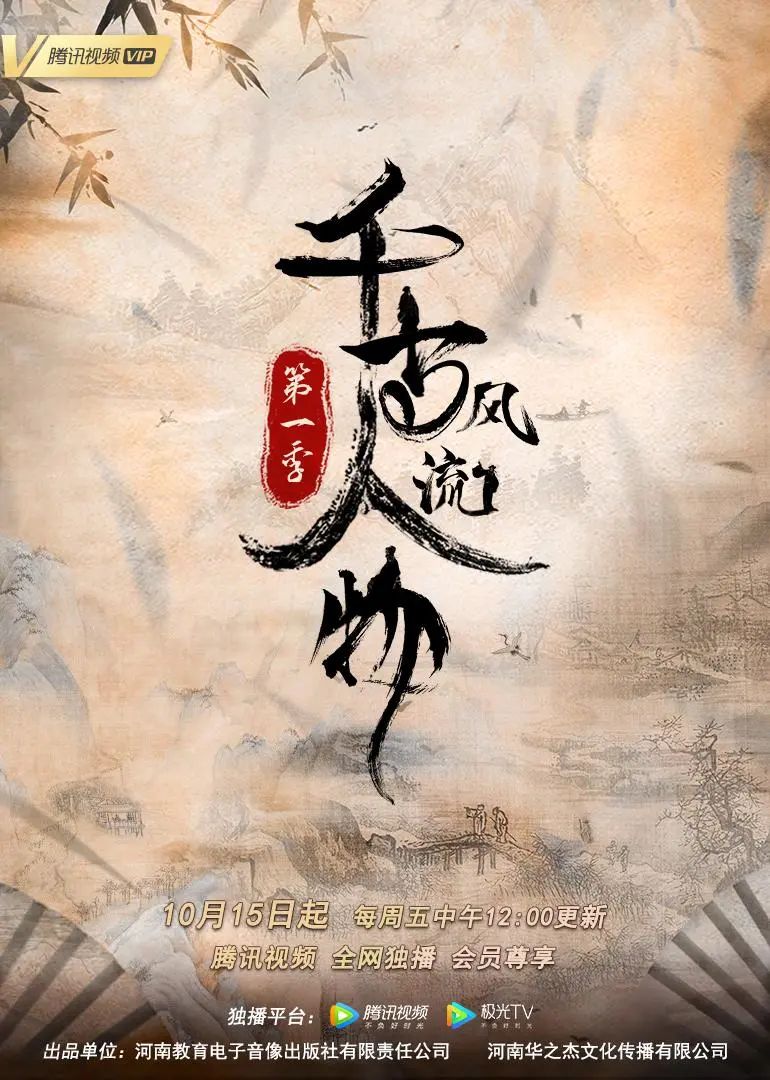 腾讯视频 VIP
千古风流人物
第一季
10月15日起 每周五中午12:00更新
腾讯视频 全网独播 会员尊享
独播平台： 腾讯视频 不负好时光 极光TV 不负好时光
出品单位：河南教育电子音像出版社有限责任公司 河南华之杰文化传播有限公司